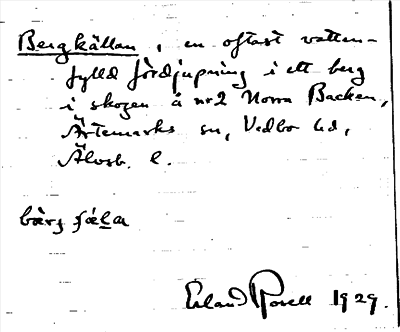 Bergkällan, en oftast vatten-
fylld fördjupning i ett berg
i skogen å nr 2 Norra Backen,
Ärtemarks sn, Vedbo hd,
Älvsb. l.
Erland Rosell 1929.